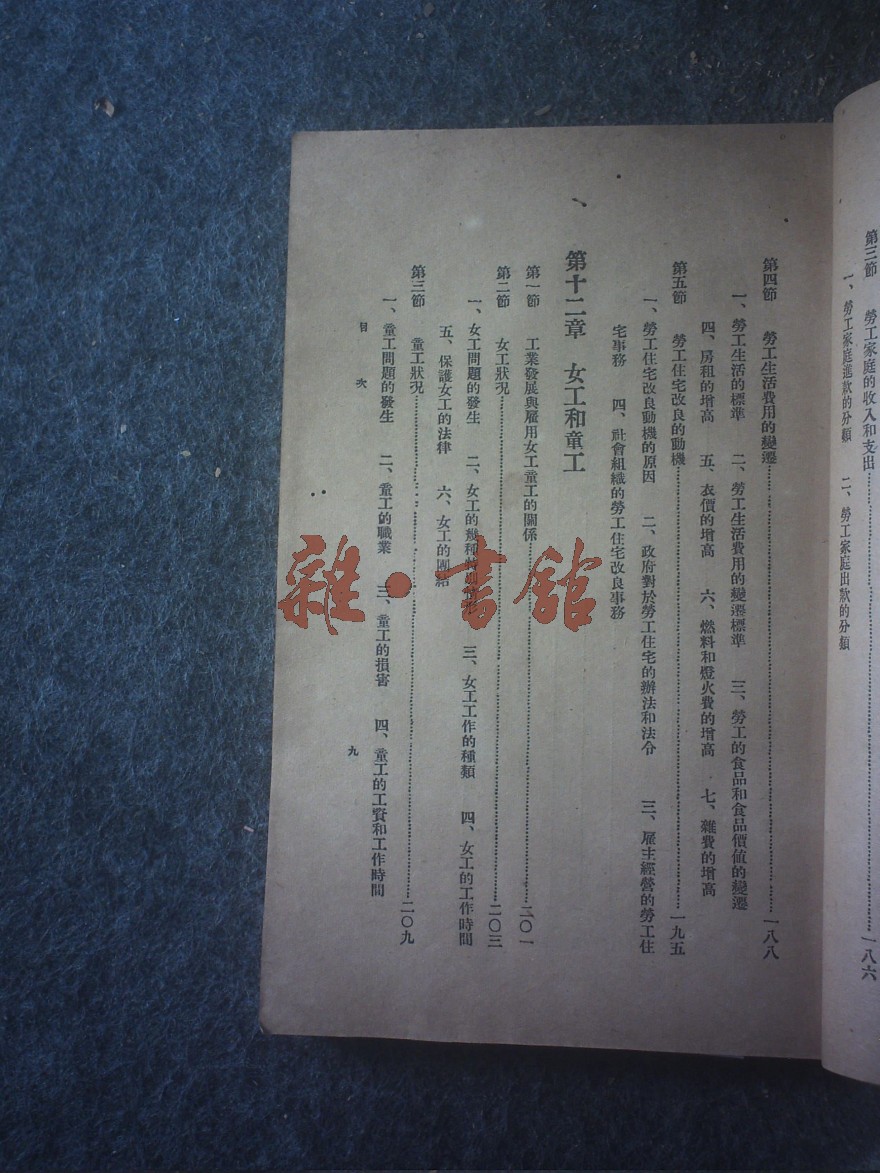 第三節　勞工家庭的收入和支出……一八六
一、勞工家庭進款的分類　二、勞工家庭出款的分類
第四節　勞工生活費用的變遷……一八八
一、勞工生活的標準　二、勞工生活費用的變遷標準　三、勞工的食品和食品價値的變遷
四、房租的增高　五、衣價的增高　六、燃料和燈火費的增高　七、雜費的增高
第五節　勞工住宅改良的動機……一九五
一、勞工住宅改良動機的原因　二、政府對於勞工住宅的辦法和法令　三、雇主經營的勞工住
宅事務　四、社會組織的勞工住宅改良事務
第十二章　女工和童工
第一節　工業發展與雇用女工童工的關係……二〇一
第二節　女工狀況……二〇三
一、女工問題的發生　二、女工的幾種　三、女工工作的種類　四、女工的工作時間
五、保護女工的法律　六、女工的團結
第三節　童工狀況……二〇九
一、童工問題的發生　二、童工的職業　三、童工的損害　四、童工的工資和工作時間
目次　九
雜・書館